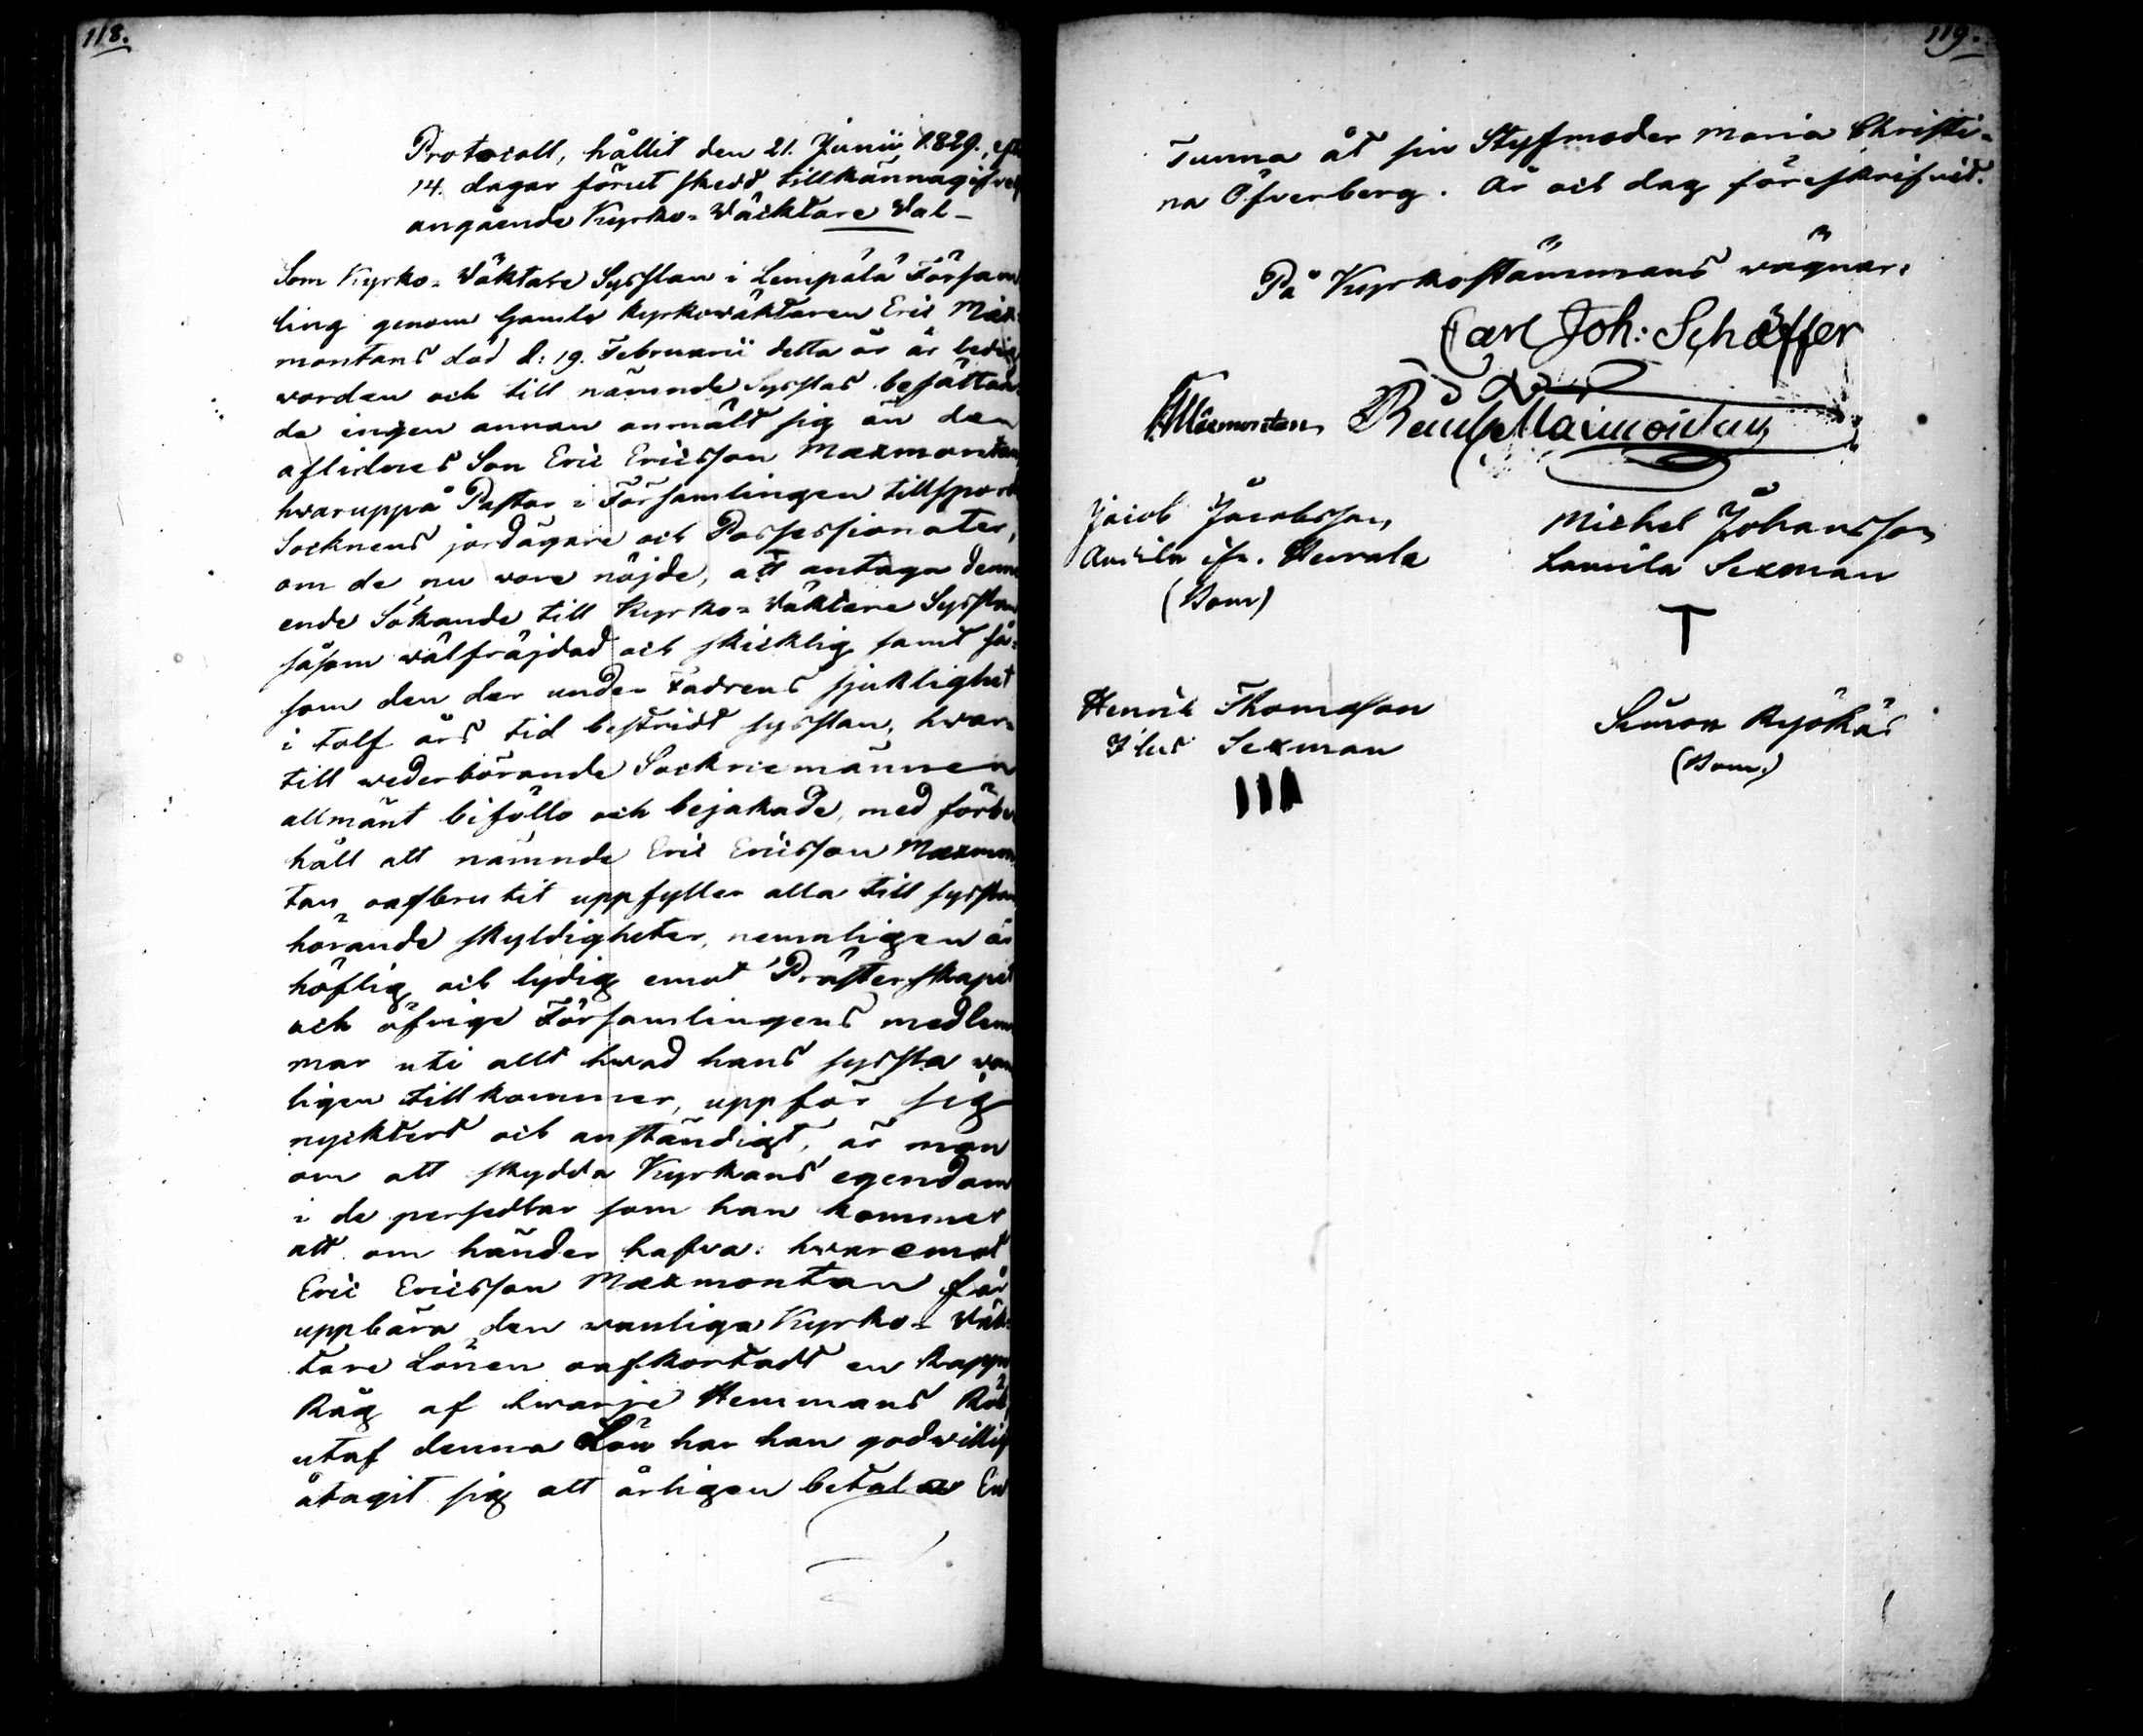 118.
Protocoll, hållit den 21. Junii 1829., efte
14. dagar förut skedd tillkännagifvels
angående Kyrko-Wäcktare Wal-
Som Kyrko-Wäktare Sysslan i Lempälä Försam
ling genom Gamle Kyrkowäktaren Eric Max-
montans död d: 19. Februarii detta år är ledig
worden och till nämnde Sysslas besättan-
de ingen annan anmält sig än den
aflidnes Son Eric Ericsson Maxmontan
hwaruppå Pastor i Församlingen tillspord
Socknens jordägare och Possessionater,
om de nu wore nöjde, att antaga denne
ende Sökande till Kyrko-Wäktare Sysslan
såsom wälfräjdad och skicklig samt så-
som den der under Fadrens sjuklighet
i tolf års tid bestridt sysslan, hwar-
till wederbörande Socknemännen
allmänt biföllo och bejakade, med förbe
håll att nämnde Eric Ericsson Maxmon
tan oafbrutit uppfyller alla till sysslan
hörande skyldigheter, nemnligen är
höflig och lydig emot Prästerskapet
och öfrige Församlingens medlem
mar uti allt hwad hans syssla wan
ligen tillkommer, uppför sig
nycktert och anständigt, är mån
om att skydda Kyrkans egendom
i de persedlar som han kommer
att om händer hafva: hwaremot
Eric Ericsson Maxmontan får
uppbära den wanliga Kyrko-Wäk-
tare Lönen oafkortadt en Kappe
Råg af hwarje Hemmans Rök,
utaf denna Lön har han godwillig
åtagit sig att årligen betala En
119.
Tunna åt sin Styfmoder Maria Christi-
na Öfverberg. År och dag föreskrifvit.
På Kyrkostämmans wägnar:
Carl Joh: Schæffer
Maxmontan
Jacob Jacobsson
Heurala
(Bom)
Michel Johansson
Lamila Sexman
T
Henrik Thomasson
Sexman
III
Simon Ryökäs
(Bom.)